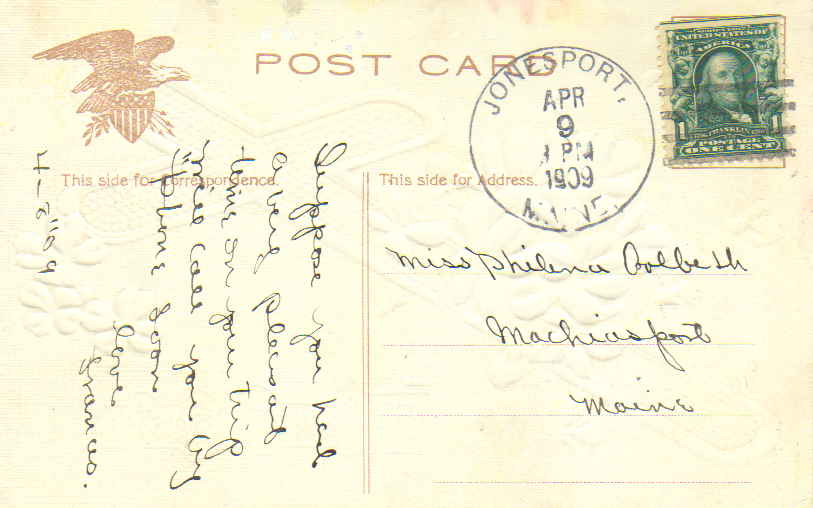 POST CARD
This side for Correspondence.
This side for Address.
JONESPORT,
APR
9
1 PM
1909
MAINE.
UNITED STATES OF
AMERICA
FRANKLIN
1 1
POSTAGE
ONE CENT
Miss Philena Colbeth
Machiasport
Maine
Suppose you had
a very pleasant
time on your trip
Will call you by
"phone soon
Love
Frances.
4-8"09